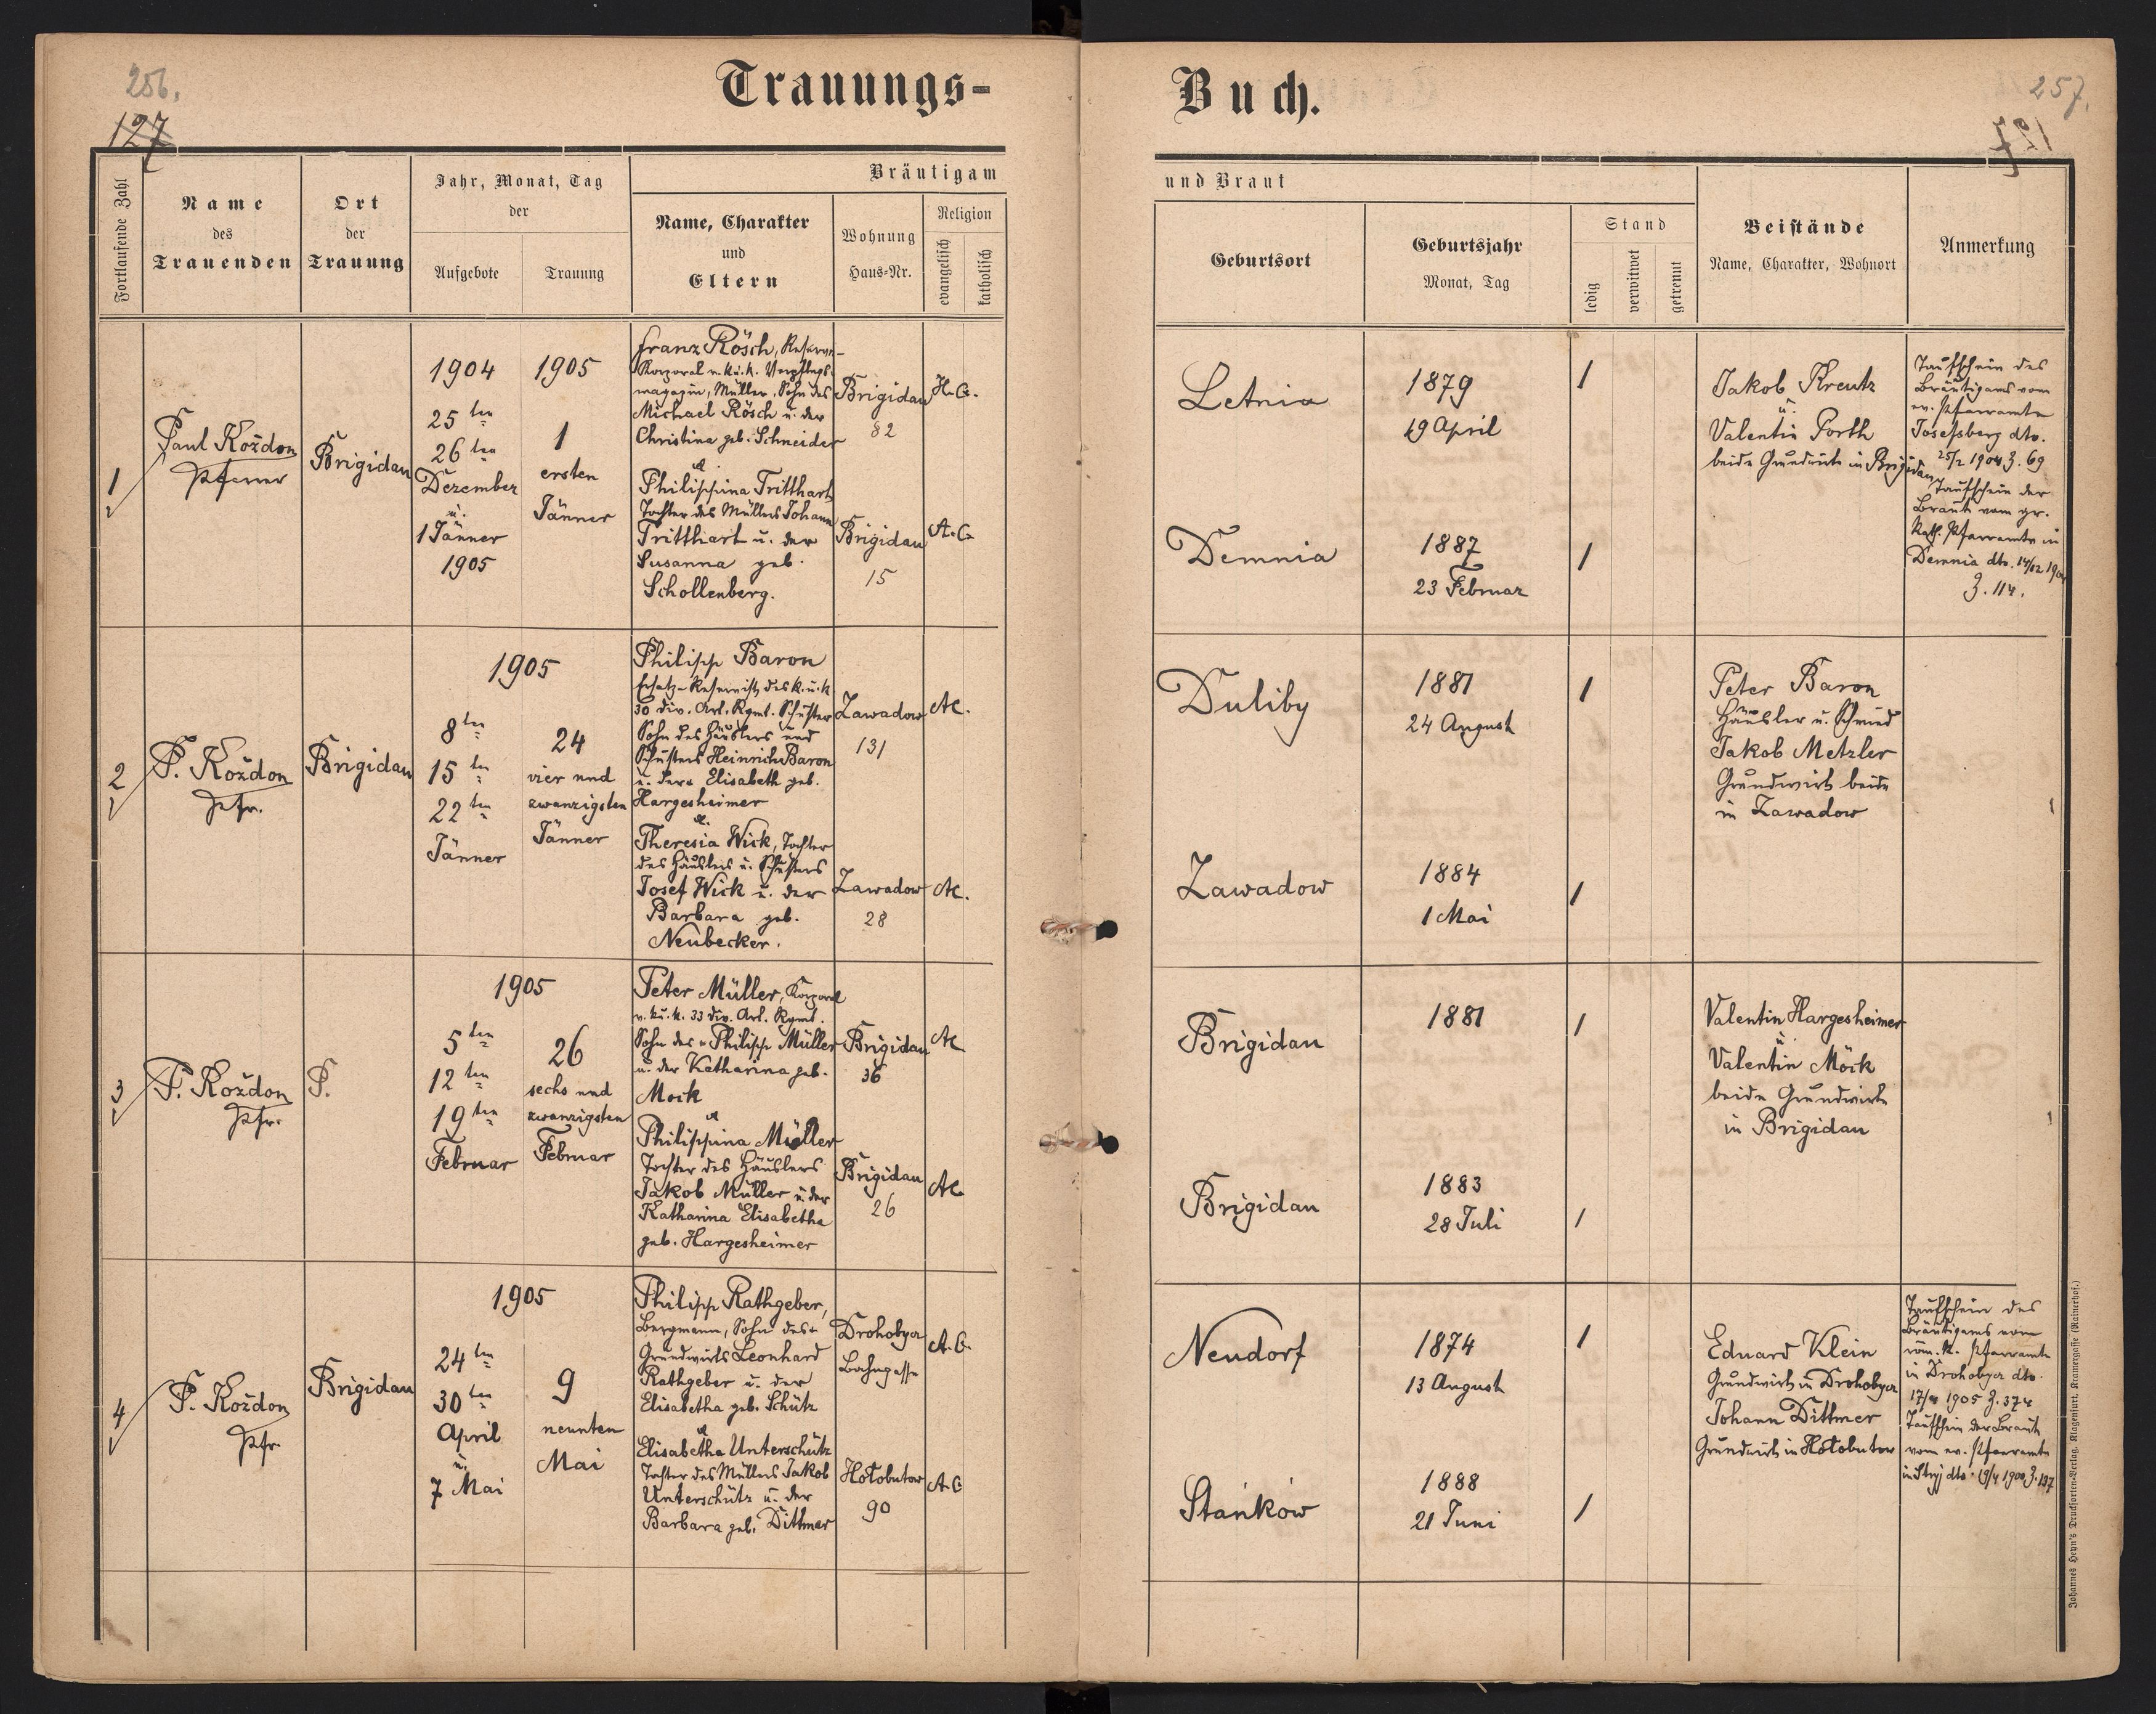 256.
127
Trauungs-
Fortlaufende Zahl
Name
des
Trauenden
Ort
der
Trauung
Jahr, Monat, Tag
der
Aufgebote
Trauung
Bräutigam
Name, Charakter
und
Eltern
Wohnung
Haus-Nr.
Religion
evangelisch
katholisch
1
Paul Koždon
Pfarrer
Brigidau
1904
25ten
26ten
Dezember
u.
1 Jänner
1905
1905
1
ersten
Jänner
Franz Rösch, Reserve-
Korporal v. k.u.k. Verpflegs-
magazin, Müller, Sohn des
Michael Rösch u. der
Christina geb. Schneider
&
Philippina Tritthart
Tochter des Müllers Johann
Tritthart u. der
Susanna geb.
Schollenberg.
Brigidau
82
H.C.
Brigidau
15
A.C.
2
P. Koždon
Pfr.
Brigidau
1905
8ten
15ten
22ten
Jänner
24
vier und
zwanzigsten
Jänner
Philipp Baron
Ersatz-Reservist des k.u.k
30 div. Art. Rgmt. Schuster
Sohn des Häuslers und
Schusters Heinrich Baron
u. der Elisabeth geb.
Hargesheimer
&.
Theresia Wick, Tochter
des Häuslers u. Schusters
Josef Wick u. der
Barbara geb.
Neubecker.
Zawadow
131
AC.
Zawadow
28
AC.
3
P. Koždon
Pfr.
B.
1905
5ten
12ten
19ten
Februar
26
sechs und
zwanzigsten
Februar
Peter Müller, Korporal
v. k.u.k. 33 div. Art. Rgmt.
Sohn des Philipp Müller
u. der Katharina geb.
Mock
&
Philippina Müller
Tochter des Häuslers
Jakob Müller u. der
Katharina Elisabetha
geb. Hargesheimer
Brigidau
36
AC
Brigidau
26
AC
4
P. Koždon
Pfr.
Brigidau
1905
24ten
30ten
April
u.
7 Mai
9
neunten
Mai
Philipp Rathgeber,
Bergmann, Sohn des
Grundwirts Leonhard
Rathgeber u. der
Elisabetha geb. Schütz
&
Elisabetha Unterschütz
Tochter des Müllers Jakob
Unterschütz u. der
Barbara geb. Dittmer
Drohobycz
Bahngasse
A.C.
Hołobutow
90
A.C
Buch.
257.
127
und Braut
Geburtsort
Geburtsjahr
Monat, Tag
Stand
ledig
verwitwet
getrennt
Beistände
Name, Charakter, Wohnort
Anmerkung
Letnia
1879
19 April
1
Jakob Kreutz
u.
Valentin Porth
beide Grundwirte in Brigidau
Taufschein des
Bräutigams vom
ev. Pfarramte
Josefsberg dto.
25/2 1904 Z. 69
Taufschein der
Braut vom gr.
kath. Pfarramte in
Demnia dto. 14/12 1904
Z. 114.
Demnia
1887
23 Februar
1
Duliby
1881
24 August
1
Peter Baron
Häusler u. Schmied
Jakob Metzler
Grundwirt beide
in Zawadow
Zawadow
1884
1 Mai
1
Brigidau
1881
1
Valentin Hargesheimer
u.
Valentin Möck
beide Grundwirte
in Brigidau
Brigidau
1883
28 Juli
1
Neudorf
1874
13 August
1
Eduard Klein
Grundwirt in Drohobycz
Johann Dittmer
Grundwirt in Hołobutow
Taufschein des
Bräutigams vom
röm. k. Pfarramte
in Drohobycz dto.
17/4 1905 Z. 374
Taufschein der Braut
vom ev. Pfarramte
in Stryj dto. 19/4 1900 Z. 197
Stańków
1888
21 Juni
1
Johannes Heyn's Drucksorten-Verlag, Klagenfurt, Kramergasse (Rainerhof.)